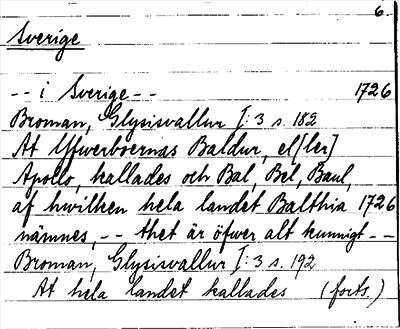 6.
Sverige
-- i Sverige -- 1726
Broman, Glysisvallur I:3 s. 182
At Yfwerboernas Baldur, el[ler]
Apollo, kallades och Bal, Bel, Baul,
af hwilken hela landet Balthia 1726
nämnes, -- thet är öfwer alt kunnigt --
Broman, Glysisvallur I:3 s. 192
At hela landet kallades (forts.)